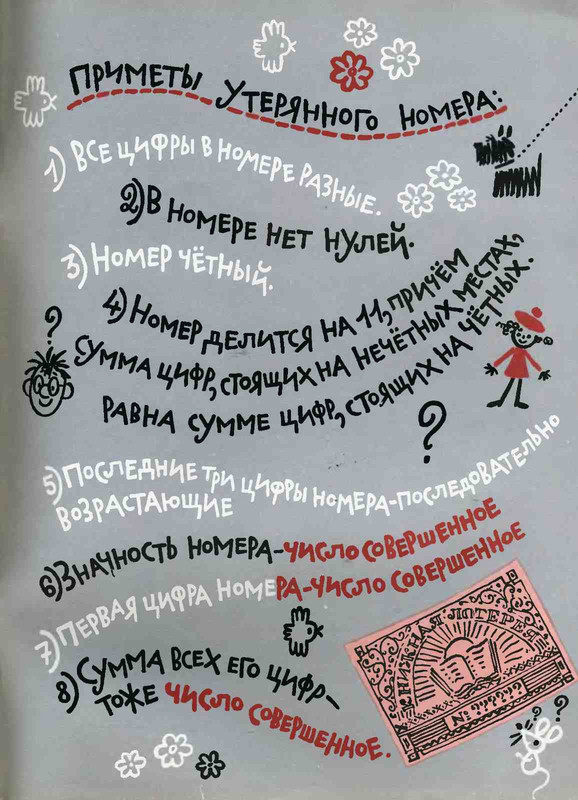 ПРИМЕТЫ УТЕРЯННОГО НОМЕРА:
1) ВСЕ ЦИФРЫ В НОМЕРЕ РАЗНЫЕ.
2) В НОМЕРЕ НЕТ НУЛЕЙ.
3) НОМЕР ЧЁТНЫЙ.
4) НОМЕР ДЕЛИТСЯ НА 11, ПРИЧЁМ
СУММА ЦИФР, СТОЯЩИХ НА НЕЧЁТНЫХ МЕСТАХ,
РАВНА СУММЕ ЦИФР, СТОЯЩИХ НА ЧЁТНЫХ.
?
?
5) ПОСЛЕДНИЕ ТРИ ЦИФРЫ НОМЕРА-ПОСЛЕДОВАТЕЛЬНО
ВОЗРАСТАЮЩИЕ
6) ЗНАЧНОСТЬ НОМЕРА-ЧИСЛО СОВЕРШЕННОЕ
7) ПЕРВАЯ ЦИФРА НОМЕРА-ЧИСЛО СОВЕРШЕННОЕ
8) СУММА ВСЕХ ЕГО ЦИФР-
ТОЖЕ ЧИСЛО СОВЕРШЕННОЕ.
КНИЖНАЯ ЛОТЕРЕЯ
№
? ?